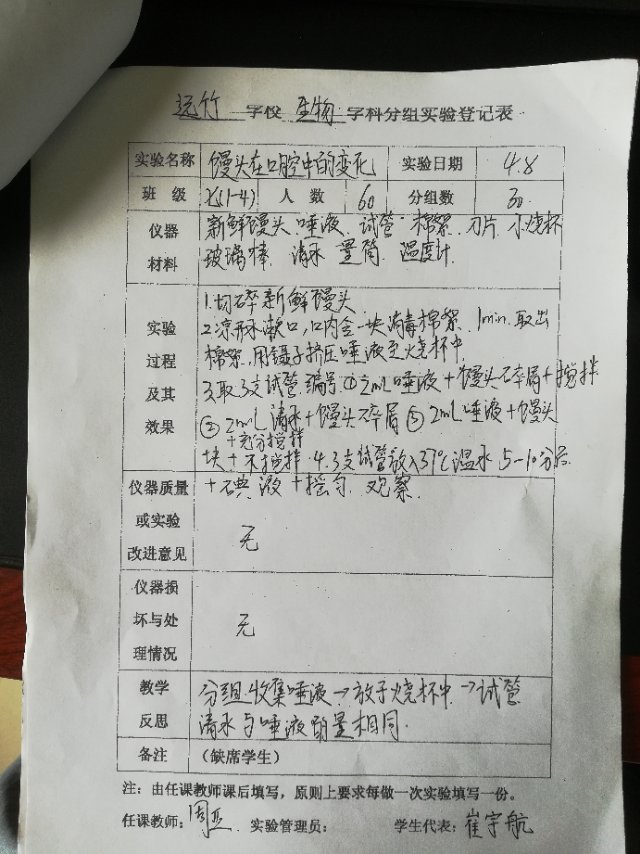 远竹 学校 生物 学科分组实验登记表
实验名称 馒头在口腔中的变化 实验日期 4.8
班 级 人 数 60 分组数 30
仪器材料 新鲜馒头 唾液 试管 棉絮 刀片 小烧杯
玻璃棒 清水 量筒 温度计
实验过程及其效果 1.切碎新鲜馒头
2.凉开水漱口,口内含一块消毒棉絮 1min 取出
棉絮,用镊子挤压唾液至烧杯中.
3.取3支试管 编号①2mL唾液+馒头碎屑+搅拌
②2mL清水+馒头碎屑 ③2mL唾液+馒头
+充分搅拌
块+不搅拌 4.3支试管放入37℃温水 5-10分后
+碘液+摇匀 观察
仪器质量或实验改进意见 无
仪器损坏与处理情况 无
教学反思 分组收集唾液→放于烧杯中→试管
清水与唾液的量相同.
备注 (缺席学生)
注:由任课教师课后填写,原则上要求每做一次实验填写一份。
任课教师:周亚 实验管理员: 学生代表:崔宇航